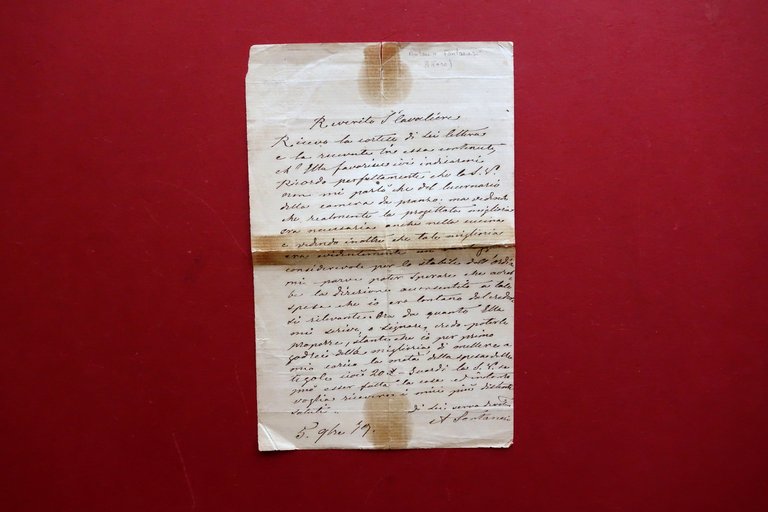 Riverito Sr Cavaliere
Ricevo la cortese di Lei lettera
e la ricevuta in essa contenuta
ch' Ella favorisce indicarmi
Ricordo perfettamente che la S.V.
non mi parlò che del lucernario
della camera da pranzo: ma vedendo
che realmente la progettata miglioria
era necessaria anche nella cucina
e vedendo inoltre che tale miglioria
era evidentemente un
considerevole per lo stabile dell'Ordine
mi parve poter sperare che avreb
be la direzione acconsentito a tale
spesa che io era lontano dal creder
sì rilevante. Ora da quanto Ella
mi scrive, o Signore, credo poterle
proporre, stante che io per primo
godrei della miglioria di mettere a
mio carico la metà della spesa delle
tegole cioè 20 Guardi la S.V. se
può esser fatta la cosa ed intanto
voglia ricevere i miei più distinti
saluti.
di Lei serva devot
A
5. 9bre 79.